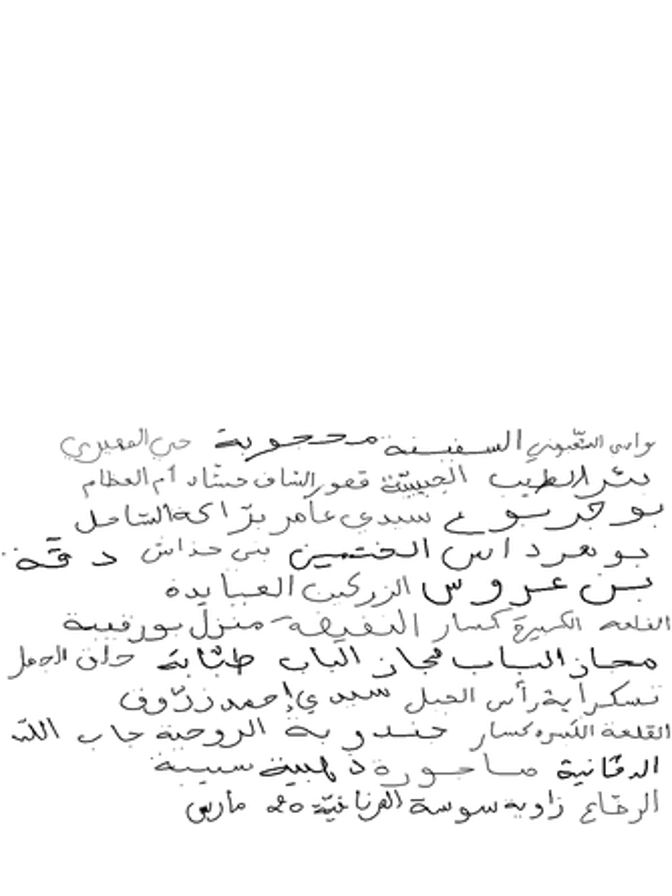 السفينة محجوبة حي
بئر الطيب الحبيبيّة قصور الساف حشّاد أم العظام
بوجربوع سيدي عامر برّاكة الساحل
بوهرداس الختمين بني حداش دقّة
بن عروس الزركين العبايدة
القلعة الكبيرة كسار النفيضة منزل بورقيبة
مجاز الباب مجاز الباب طبّابة حلق الجمل
تسكراية رأس الجبل سيدي إحمد زرّوف
القلعة الكبيرة كسار جندوبة الروحية جاب اللّه
الدڨانية صاحورة ذهيبة سبيبة
الرڨاع زاوية سوسة الفرنانيّة 20 مارس